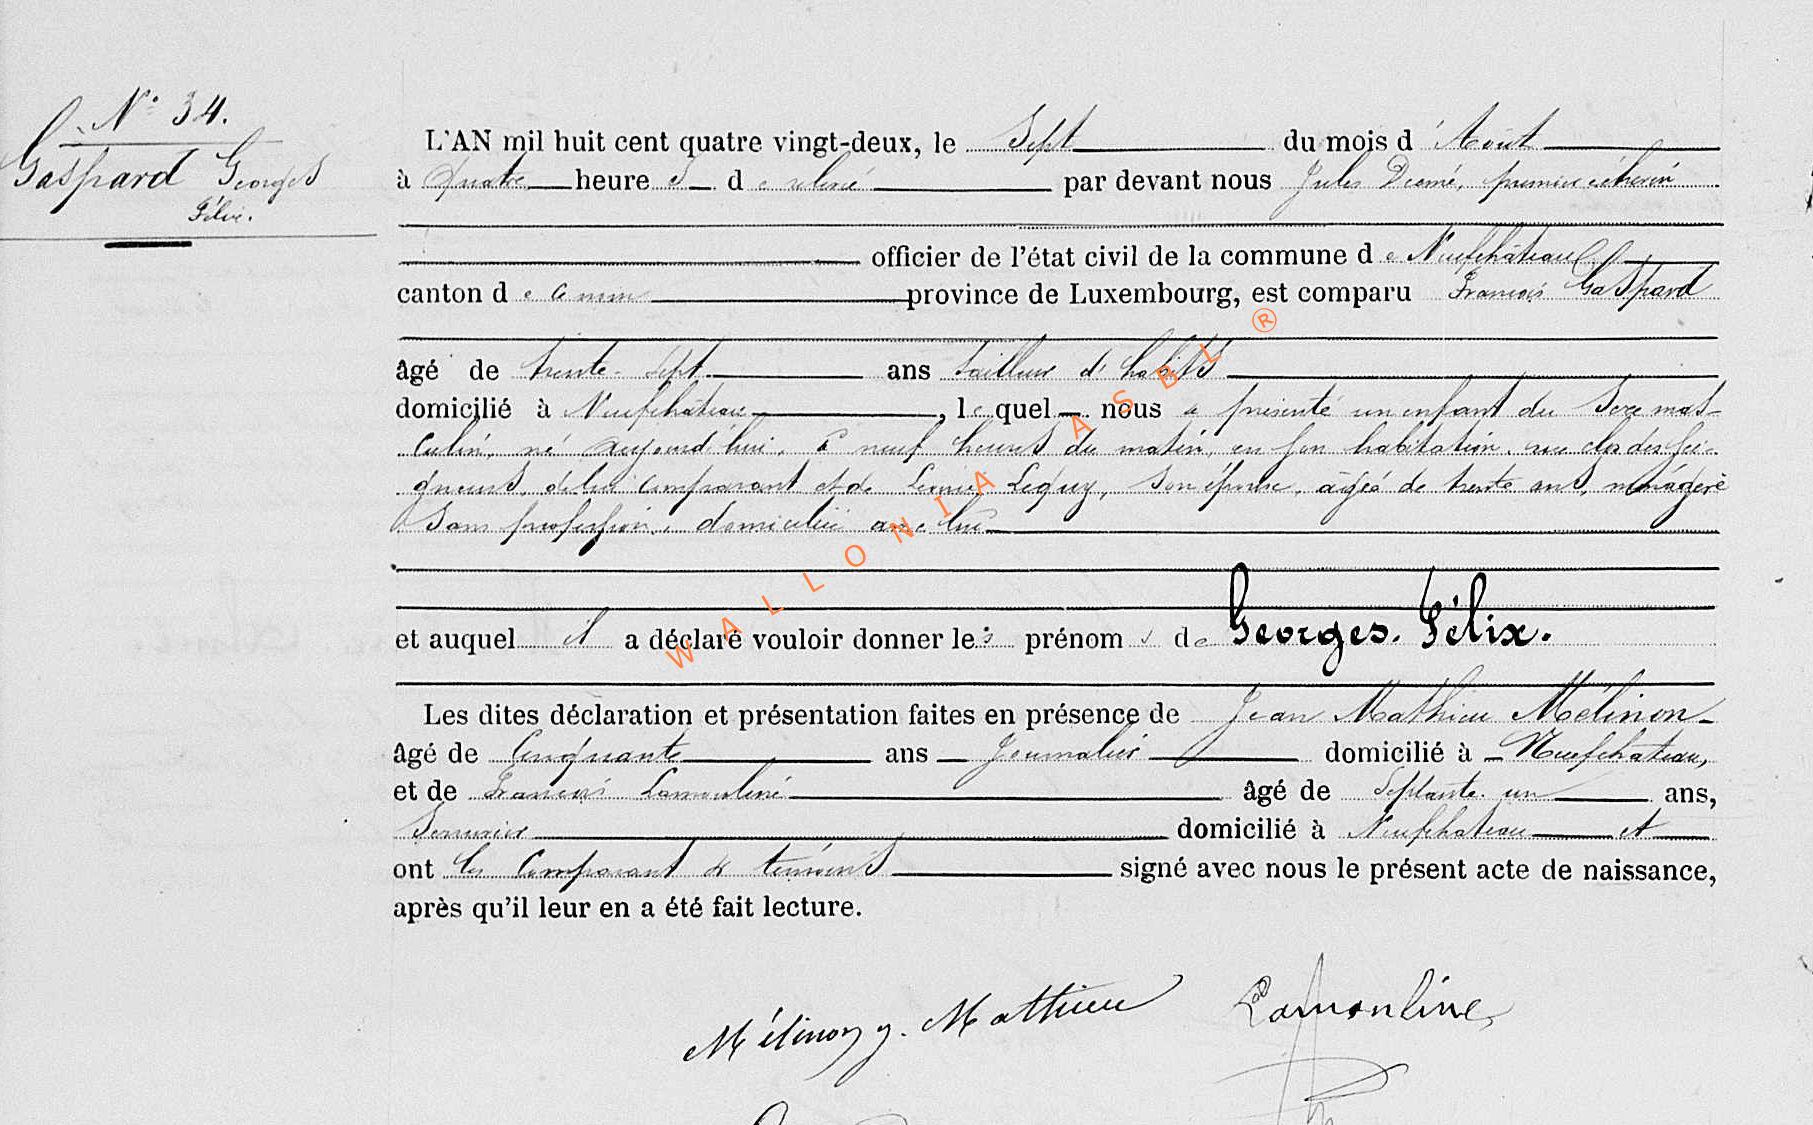 N° 34.
Gaspard Georges
Félix.
L'AN mil huit cent quatre vingt-deux, le Sept du mois d'Août
à quatre heures de relevé par devant nous Jules premier échevin
officier de l'état civil de la commune de Neufchâteau
canton de province de Luxembourg, est comparu François Gaspard
âgé de trente-sept ans tailleur d'habits
domicilié à Neufchâteau, lequel nous a présenté un enfant du sexe mas-
culin, né aujourd'hui, à neuf heures du matin, en son habitation, rue clos des sei-
gneurs, de lui comparant et de Lequy, son épouse, âgée de trente ans, ménagère
sans profession, domiciliée avec lui
et auquel il a déclaré vouloir donner les prénoms de Georges. Félix.
Les dites déclaration et présentation faites en présence de Jean Mathieu Mélinon
âgé de Cinquante ans Journalier domicilié à Neufchateau,
et de François Lamouline âgé de Septante un ans,
domicilié à Neufchateau et
ont les Comparant & témoins signé avec nous le présent acte de naissance,
après qu'il leur en a été fait lecture.
Mélinon J. Mathieu Lamouline
WALLONIA ASBL ®